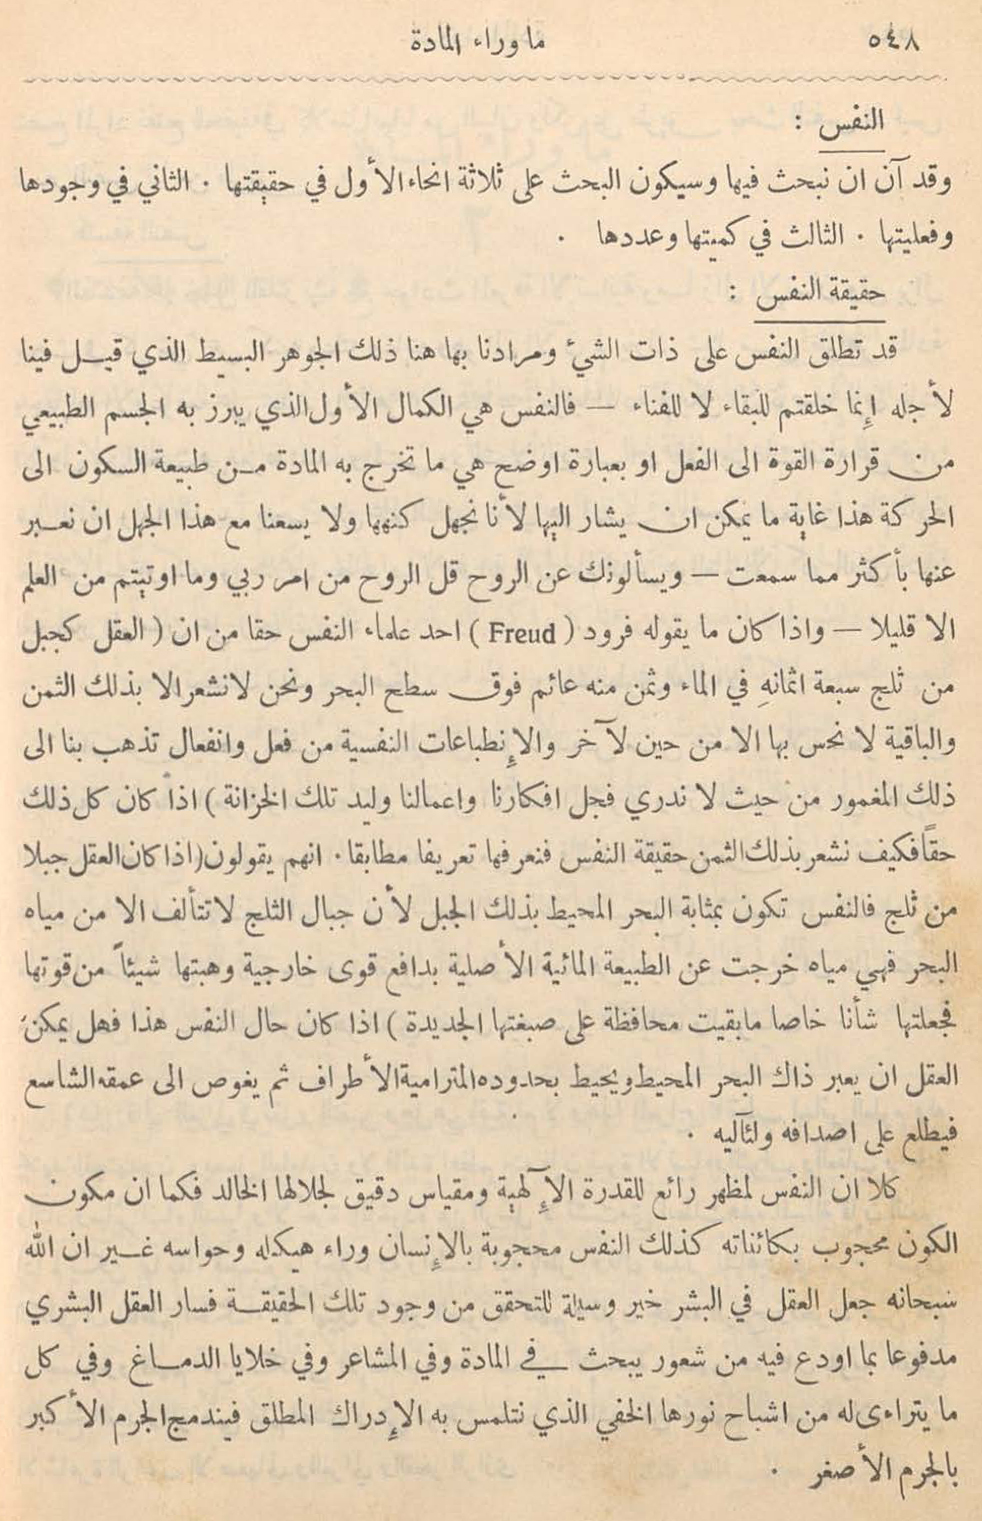 ٥٤٨
ما وراء المادة
النفس :
وقد آن ان نبحث فيها وسيكون البحث على ثلاثة انحاء الأول في حقيقتها . الثاني في وجودها
وفعليتها . الثالث في كميتها وعددها .
حقيقة النفس :
قد تطلق النفس على ذات الشيء ومرادنا بها هنا ذلك الجوهر البسيط الذي قيل فينا
لأجله إنما خلقتم للبقاء لا للفناء – فالنفس هي الكمال الأول الذي يبرز به الجسم الطبيعي
من قرارة القوة الى الفعل او بعبارة اوضح هي ما تخرج به المادة من طبيعة السكون الى
الحركة هذا غاية ما يمكن ان يشار اليها لأنا نجهل كنهها ولا يسعنا مع هذا الجهل ان نعبر
عنها بأكثر مما سمعت – ويسألونك عن الروح قل الروح من امر ربي وما اوتيتم من العلم
الا قليلا – واذا كان ما يقوله فرود ( Freud ) احد علماء النفس حقا من ان ( العقل كجبل
من ثلج سبعة اثمانهِ في الماء وثمن منه عائم فوق سطح البحر ونحن لا نشعر الا بذلك الثمن
والباقية لا نحس بها الا من حين لآخر والإنطباعات النفسية من فعل وانفعال تذهب بنا الى
ذلك المغمور من حيث لا ندري فجل افكارنا واعمالنا وليد تلك الخزانة ) اذا كان كل ذلك
حقاً فكيف نشعر بذلك الثمن حقيقة النفس فنعرفها تعريفا مطابقا . انهم يقولون (اذا كان العقل جبلا
من ثلج فالنفس تكون بمثابة البحر المحيط بذلك الجبل لأن جبال الثلج لا تتألف الا من مياه
البحر فهي مياه خرجت عن الطبيعة المائية الأصلية بدافع قوى خارجية وهبتها شيئاً من قوتها
فجعلتها شأنا خاصا ما بقيت محافظة على صبغتها الجديدة ) اذا كان حال النفس هذا فهل يمكن
العقل ان يعبر ذاك البحر المحيط ويحيط بحدوده المترامية الأطراف ثم يغوص الى عمقه الشاسع
فيطلع على اصدافه ولئآليه .
كلا ان النفس لمظهر رائع للقدرة الإآلهية ومقياس دقيق لجلالها الخالد فكما ان مكون
الكون محجوب بكائناته كذلك النفس محجوبة بالإنسان وراء هيكله وحواسه غير ان الله
سبحانه جعل العقل في البشر خير وسيلة للتحقق من وجود تلك الحقيقة فسار العقل البشري
مدفوعا بما اودع فيه من شعور يبحث في المادة وفي المشاعر وفي خلايا الدماغ وفي كل
ما يتراءى له من اشباح نورها الخفي الذي نتلمس به الإدراك المطلق فيندمج الجرم الأكبر
بالجرم الأصغر .